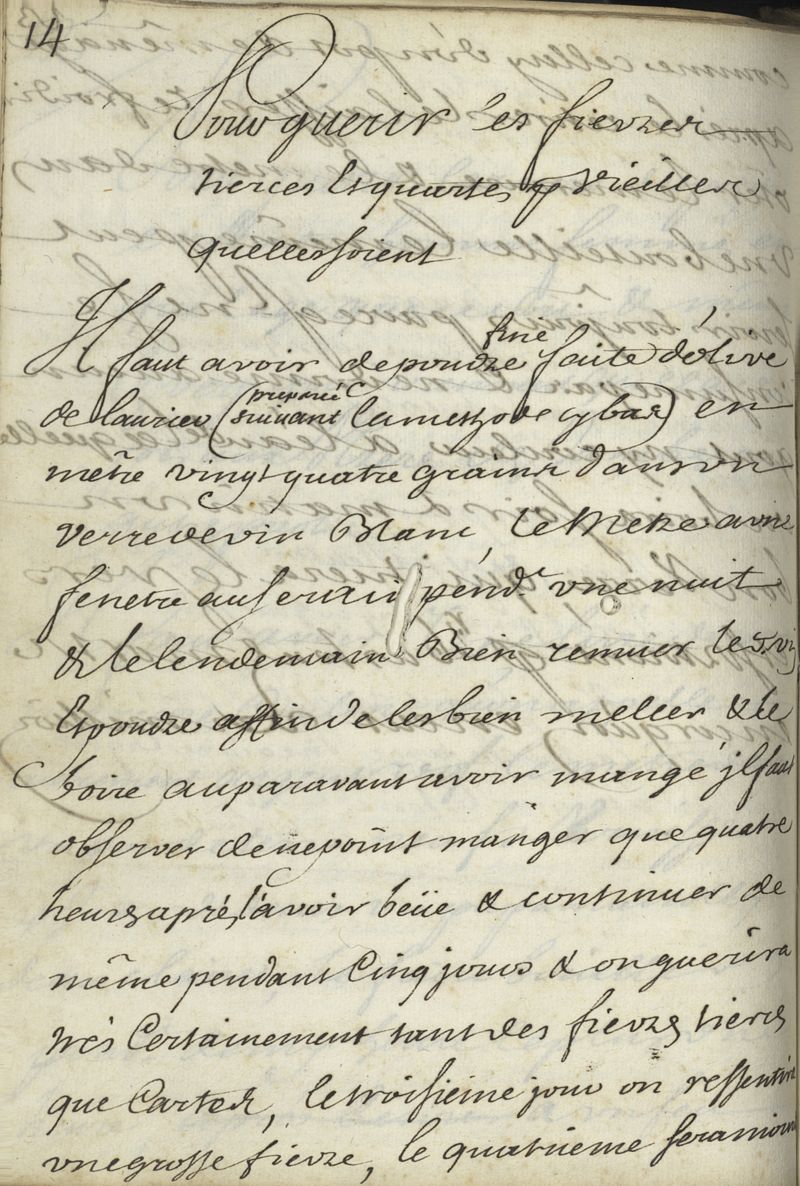 14
Pour guerir les fievres
tierces et quartes, p vieilles
quelles soient
Il faut avoir de poudre fine faite d'olive
de laurier (preparée suivant la methode cy bas) en
mêtre vingt quatre grains dans un
verre de vin Blanc, le Metre a une
fenetre au serain pend.t une nuit
& le lendemain Bien remuer le d. vin
et poudre affin de les bien meller & le
boire auparavant avoir mangé, jl faut
observer de ne point mânger que quatre
heures aprés, l'avoir beüe & continuer de
même pendant Cinq jours & on guerira
très Certainement tant des fievres tierces
que Cartes, le troisieme jour on ressentira
une grosse fievre, le quatrieme sera moins